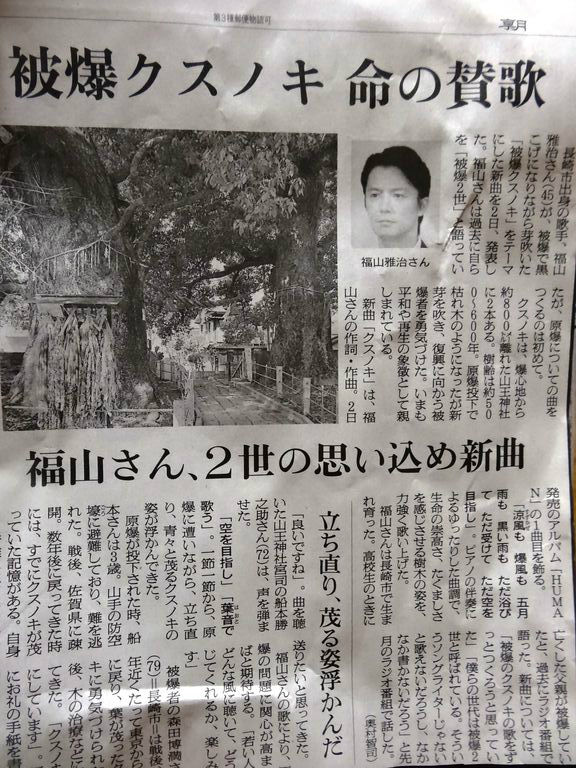 第3種郵便物認可
朝
被爆クスノキ 命の賛歌
長崎市出身の歌手、福山
雅治さん(45)が、被爆で黒
こげになりながら芽吹いた
「被爆クスノキ」をテーマ
にした新曲を2日、発表し
た。福山さんは過去に自ら
を「被爆2世」と語ってい
福山雅治さん
たが、原爆についての曲を
つくるのは初めて。
クスノキは、爆心地から
約800㍍離れた山王神社
に2本ある。樹齢は約50
0~600年。原爆投下で
枯れ木のようになったが新
芽を吹き、復興に向かう被
爆者を勇気づけた。いまも
平和や再生の象徴として親
しまれている。
新曲「クスノキ」は、福
山さんの作詞・作曲。2日
福山さん、2世の思い込め新曲
発売のアルバム「HUMA
N」の1曲目を飾る。
「涼風も 爆風も 五月
雨も 黒い雨も ただ浴び
て ただ受けて ただ空を
目指し」。ピアノの伴奏に
よるゆったりした曲調で、
生命の崇高さ、たくましさ
を感じさせる樹木の姿を、
力強く歌い上げた。
福山さんは長崎市で生ま
れ育った。高校生のときに
亡くした父親が被爆してい
たと、過去にラジオ番組で
語った。新曲については、
「被爆クスノキの歌をず
っとつくろうと思ってい
た」「僕らの世代は被爆2
世と呼ばれている。そうい
うソングライターじゃない
と歌えないだろうし、なか
なか書かないだろう」と先
月のラジオ番組で話した。
(奥村智司)
立ち直り、茂る姿浮かんだ
「良いですね」。曲を聴
いた山王神社宮司の船本勝
之助さん(72)は、声を弾ま
せた。
「空を目指し」「葉音で
歌う」。一節一節から、原
爆に遭いながら、立ち直
り、青々と茂るクスノキの
姿が浮かんできた。
原爆が投下された時、船
本さんは3歳。山手の防空
壕に避難しており、難を逃
れた。戦後、佐賀県に疎
開。数年後に戻ってきた時
には、すでにクスノキが茂
っていた記憶がある。自身
送りたいと思ってきた。
福山さんの歌により、原
爆の問題に関心が高ま
ばと期待する。「若い人
どんな風に聴いて、どう
じてくれるか、楽しみ
す」
被爆者の森田博満
(79)=長崎市=は戦後
年近くたって東京から
に戻り、葉が茂ったク
キに勇気づけられ
後、木の治療など
てきた。「クスノ
にしています」。
にお礼の手紙を書